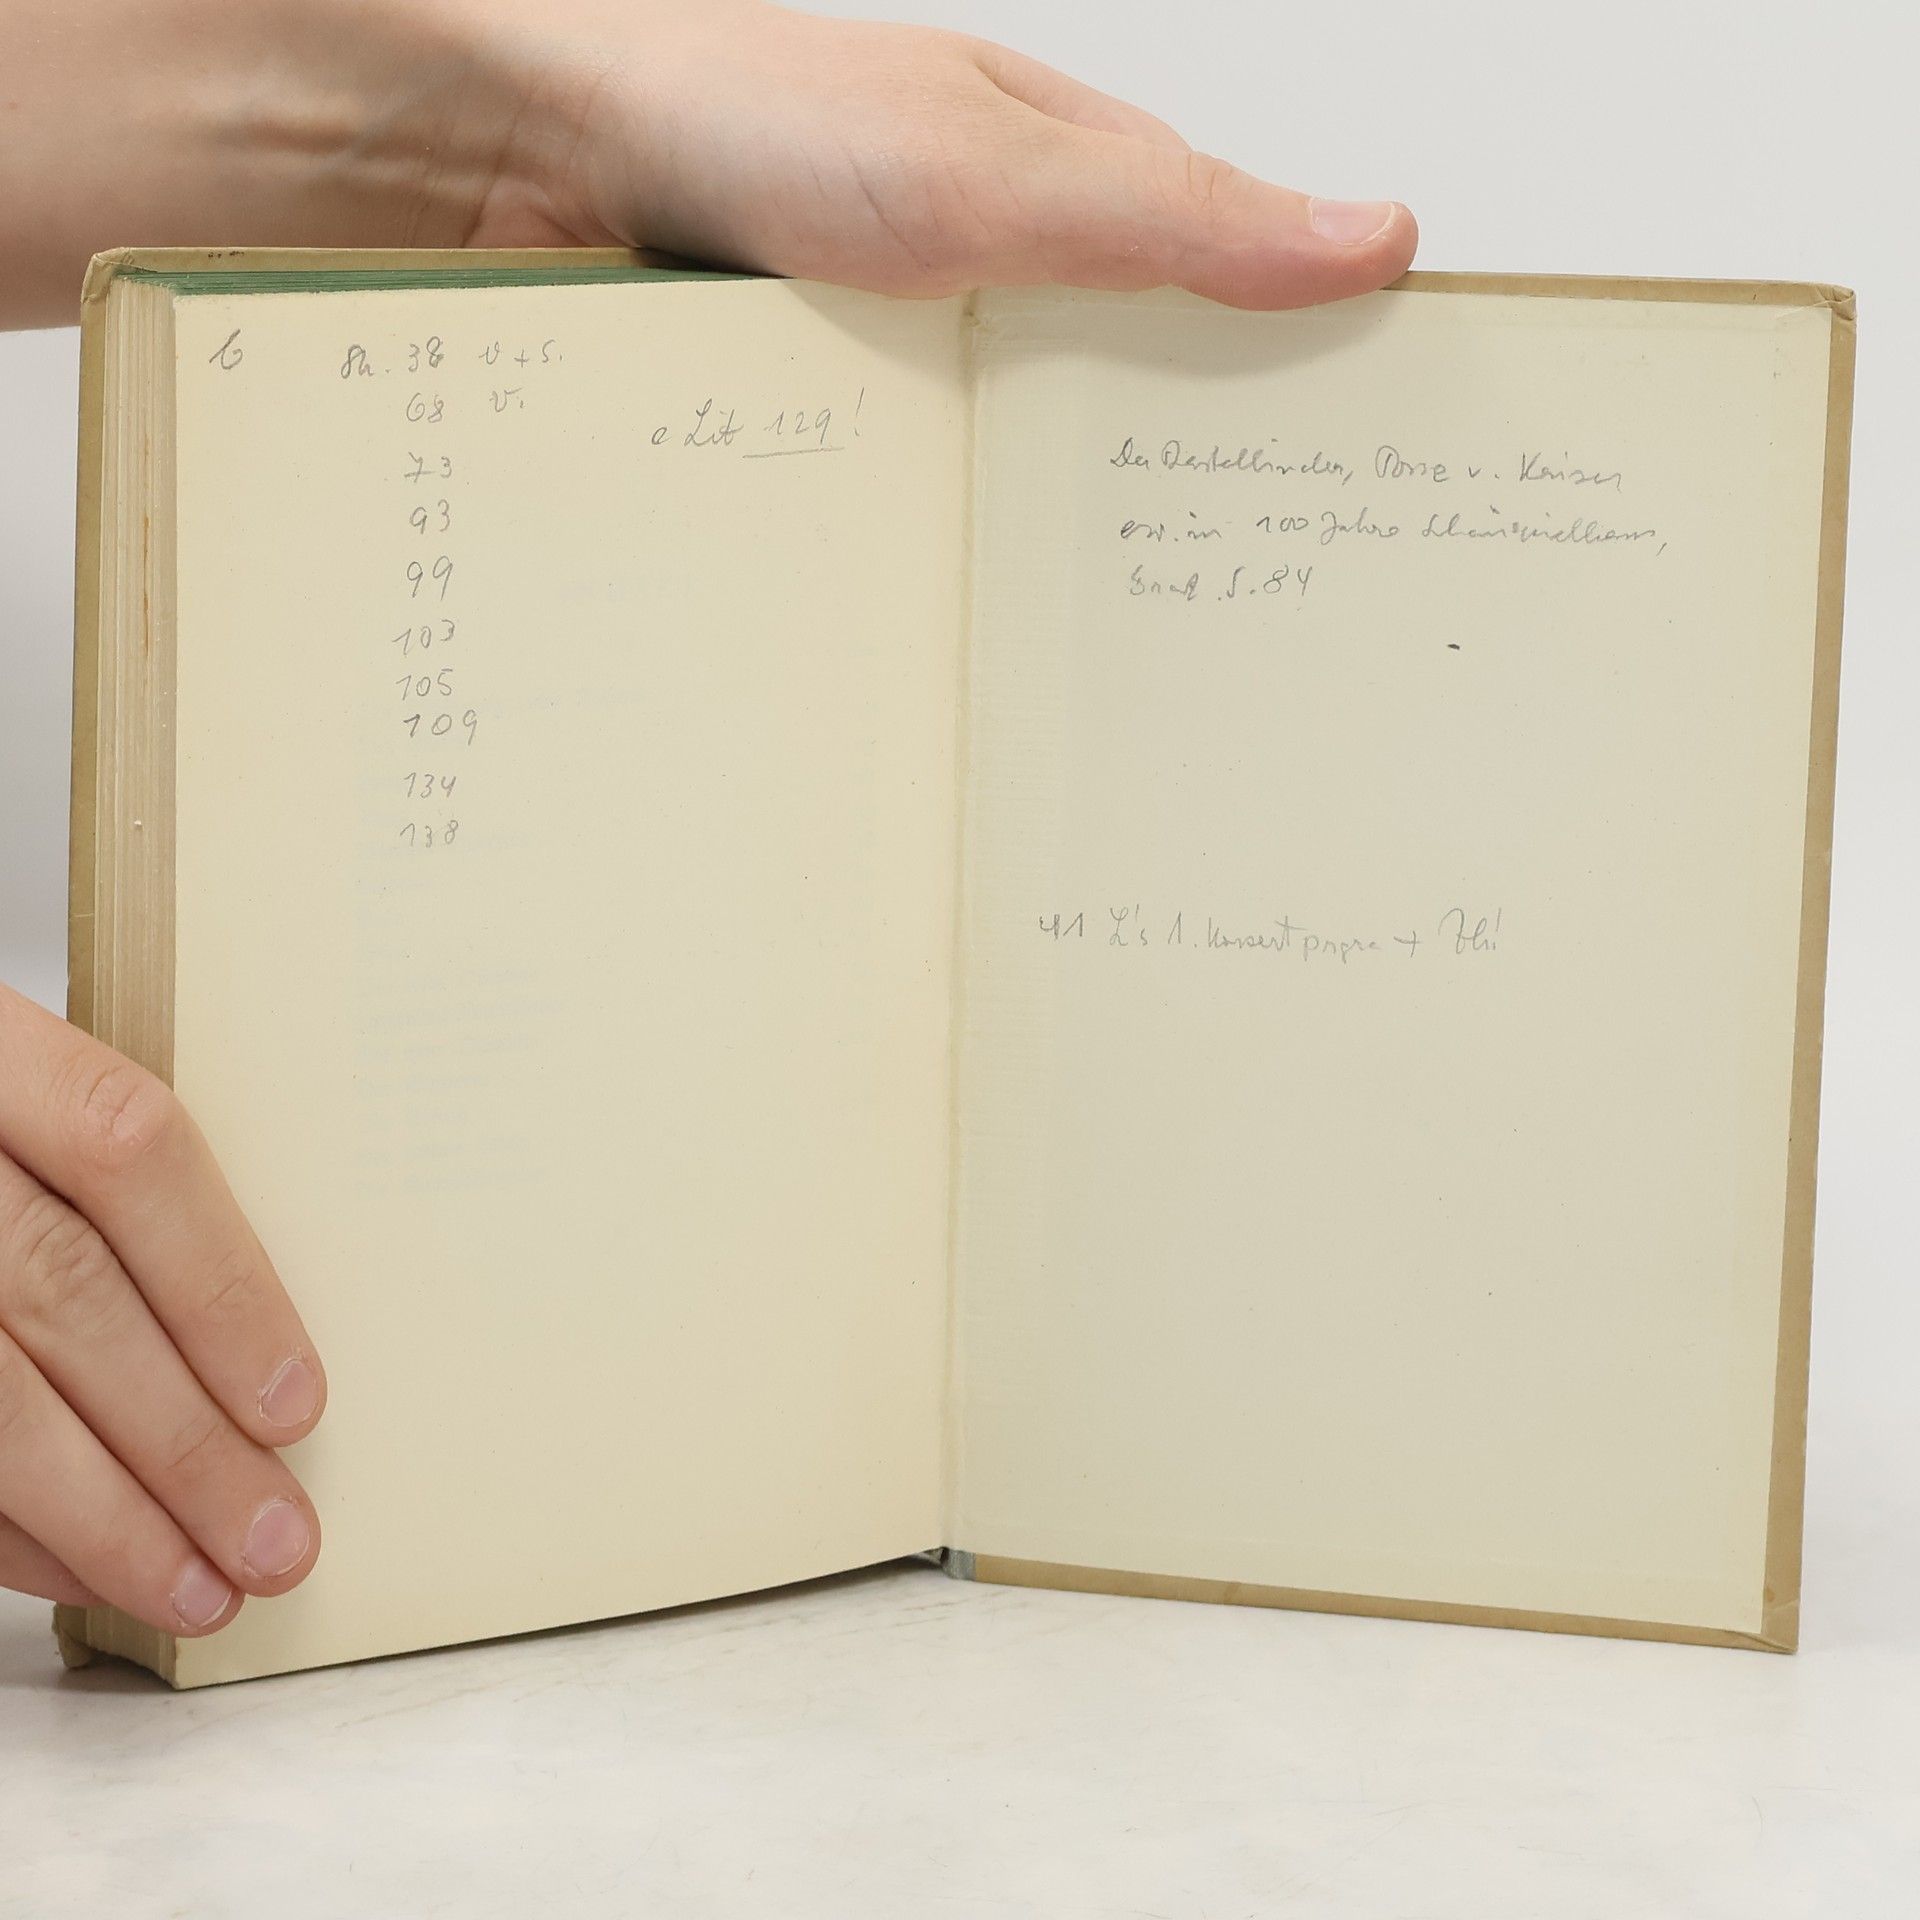 6
Sh. 38 v + S.
68 v.
e Lit 129!
73
93
99
103
105
109
134
138
Der Rastelbinder, Posse v. Kaiser
erw. in 100 Jahre Schauspielhaus,
Graz S. 84
41 L's 1. Konzert progra +